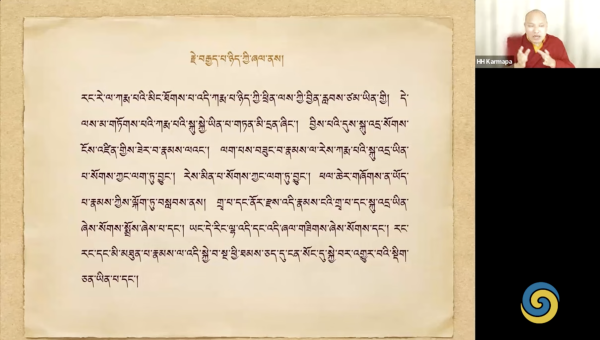 རྗེ་བརྒྱད་པ་ཉིད་ཀྱི་ཞལ་ནས།
རང་རེ་ལ་ཀརྨ་པའི་མིང་ཐོགས་པ་འདི་ཀརྨ་པ་ཉིད་ཀྱི་ཕྲིན་ལས་ཀྱི་བྱིན་རླབས་ཙམ་ཡིན་གྱི། དེ་
ལས་མ་གཏོགས་པའི་ཀརྨ་པའི་སྐུ་སྐྱེ་ཡིན་པ་གཏན་མི་དྲན་ཞིང་། བྱིས་པའི་དུས་སྐུ་འདྲ་སོགས་
ངོས་འཛིན་གྱིས་ཟེར་བ་རྣམས་ལའང་། ལག་པས་བཟུང་བ་རྣམས་ལ་རེས་ཀརྨ་པའི་སྐུ་འདྲ་ཡིན་
པ་སོགས་ཀྱང་ལག་ཏུ་བྱུང་། རེས་མིན་པ་སོགས་ཀྱང་ལག་ཏུ་བྱུང་། ཕལ་ཆེར་གཞོགས་ན་ཡོད་
པ་རྣམས་ཀྱིས་ལྐོག་ཏུ་བསླབས་ནས། གྲྭ་པ་དང་ནོར་རྫས་འདི་རྣམས་ངའི་གྲྭ་པ་དང་སྐུ་འདྲ་ཡིན་
ཞེས་སོགས་སྨྲོས་ཞེས་པ་དང་། ཡང་དེ་རིང་ལྷ་འདི་དང་འདི་ཞལ་གཟིགས་ཞེས་སོགས་དང་། རང་
རང་དང་མི་མཐུན་པ་རྣམས་ལ་འདི་སྐྱེ་བ་སྔ་ཕྱི་ཐམས་ཅད་དུ་ངན་སོང་དུ་སྐྱེ་བར་འགྱུར་བའི་སྡིག་
ཅན་ཡིན་པ་དང་།
HH Karmapa